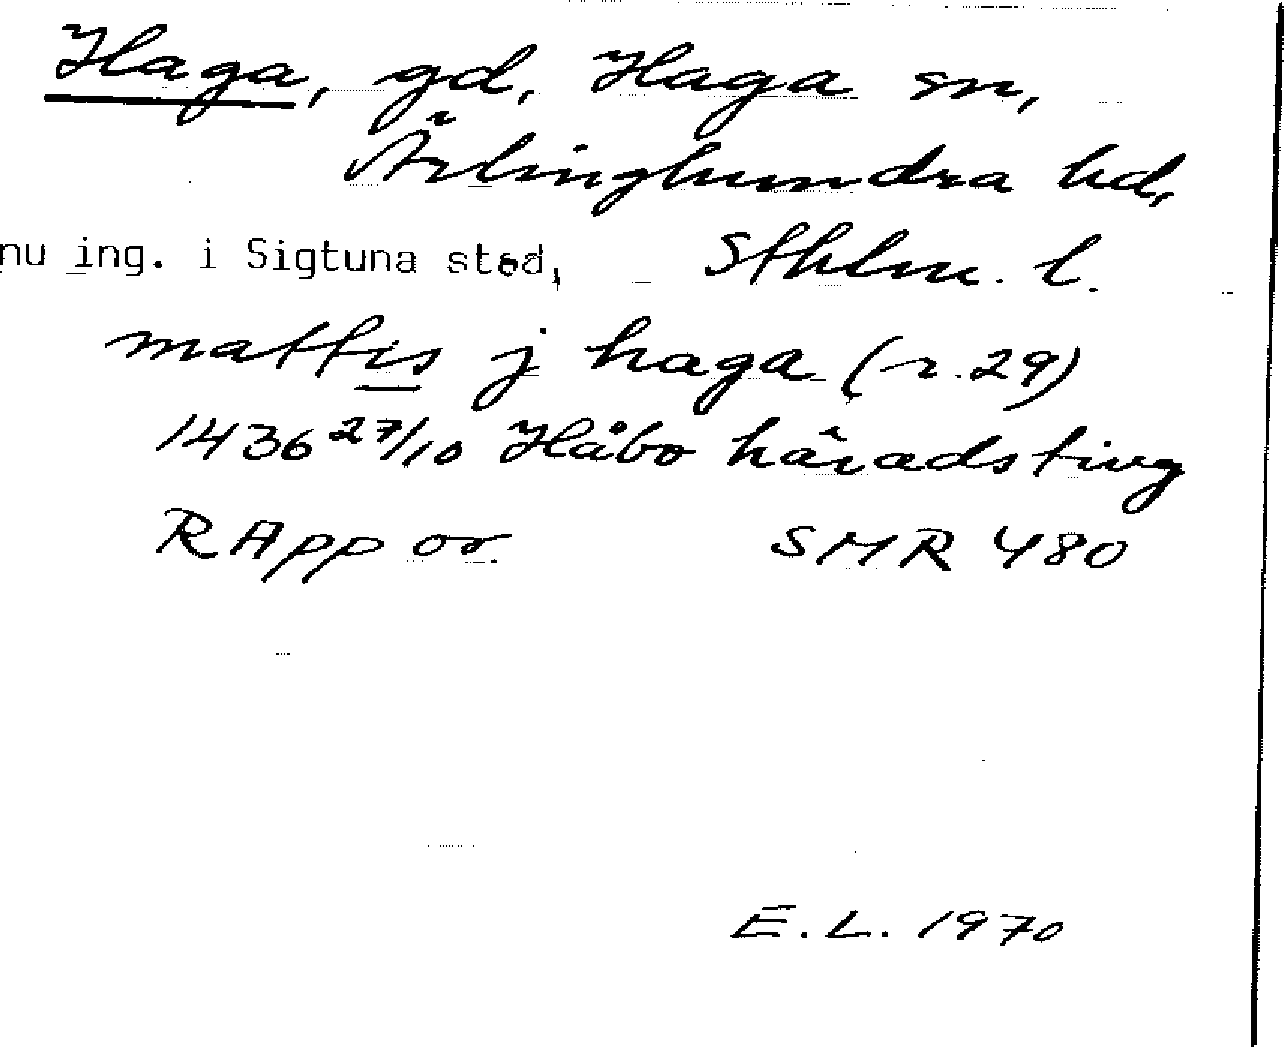 Haga, gd, Haga sn,
Ärlinghundra hd,
nu ing. i Sigtuna stad, Sthlm. l.
mattis j haga (r. 29)
1436 27/10 Håbo häradsting
RApp or. SMR 480
E. L. 1970